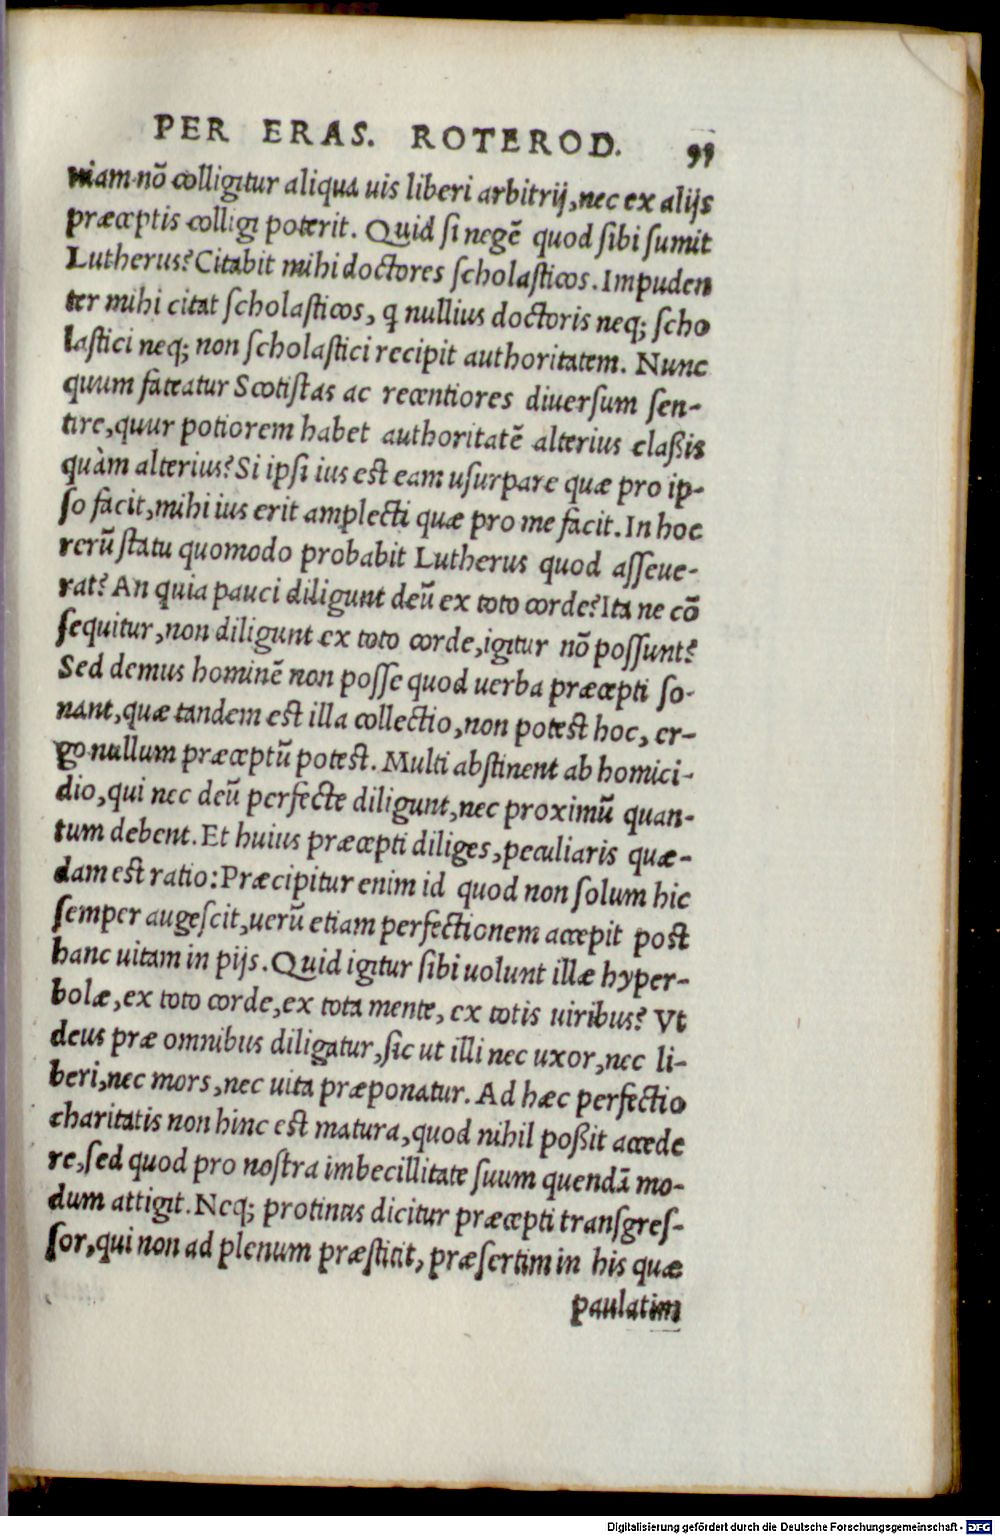 PER ERAS. ROTEROD. 99
niam nō colligitur aliqua uis liberi arbitrij, nec ex alijs
præceptis colligi poterit. Quid si negē quod sibi sumit
Lutherus? Citabit mihi doctores scholasticos. Impuden
ter mihi citat scholasticos, q̨ nullius doctoris neq; scho
lastici neq; non scholastici recipit authoritatem. Nunc
quum fateatur Scotistas ac recentiores diuersum sen-
tire, quur potiorem habet authoritatē alterius claßis
quàm alterius? Si ipsi ius est eam usurpare quæ pro ip-
so facit, mihi ius erit amplecti quæ pro me facit. In hoc
rerū statu quomodo probabit Lutherus quod asseue-
rat? An quia pauci diligunt deū ex toto corde? Ita ne cō
sequitur, non diligunt ex toto corde, igitur nō possunt?
Sed demus hominē non posse quod uerba præcepti so-
nant, quæ tandem est illa collectio, non potest hoc, er-
go nullum præceptū potest. Multi abstinent ab homici-
dio, qui nec deū perfecte diligunt, nec proximū quan-
tum debent. Et huius præcepti diliges, peculiaris quæ-
dam est ratio: Præcipitur enim id quod non solum hic
semper augescit, uerū etiam perfectionem accepit post
hanc uitam in pijs. Quid igitur sibi uolunt illæ hyper-
bolæ, ex toto corde, ex tota mente, ex totis uiribus? Vt
deus præ omnibus diligatur, sic ut illi nec uxor, nec li-
beri, nec mors, nec uita præponatur. Ad hæc perfectio
charitatis non hinc est matura, quod nihil poßit accede
re, sed quod pro nostra imbecillitate suum quendā mo-
dum attigit. Neq; protinus dicitur præcepti transgres-
sor, qui non ad plenum præstitit, præsertim in his quæ
paulatim
Digitalisierung gefördert durch die Deutsche Forschungsgemeinschaft - DFG